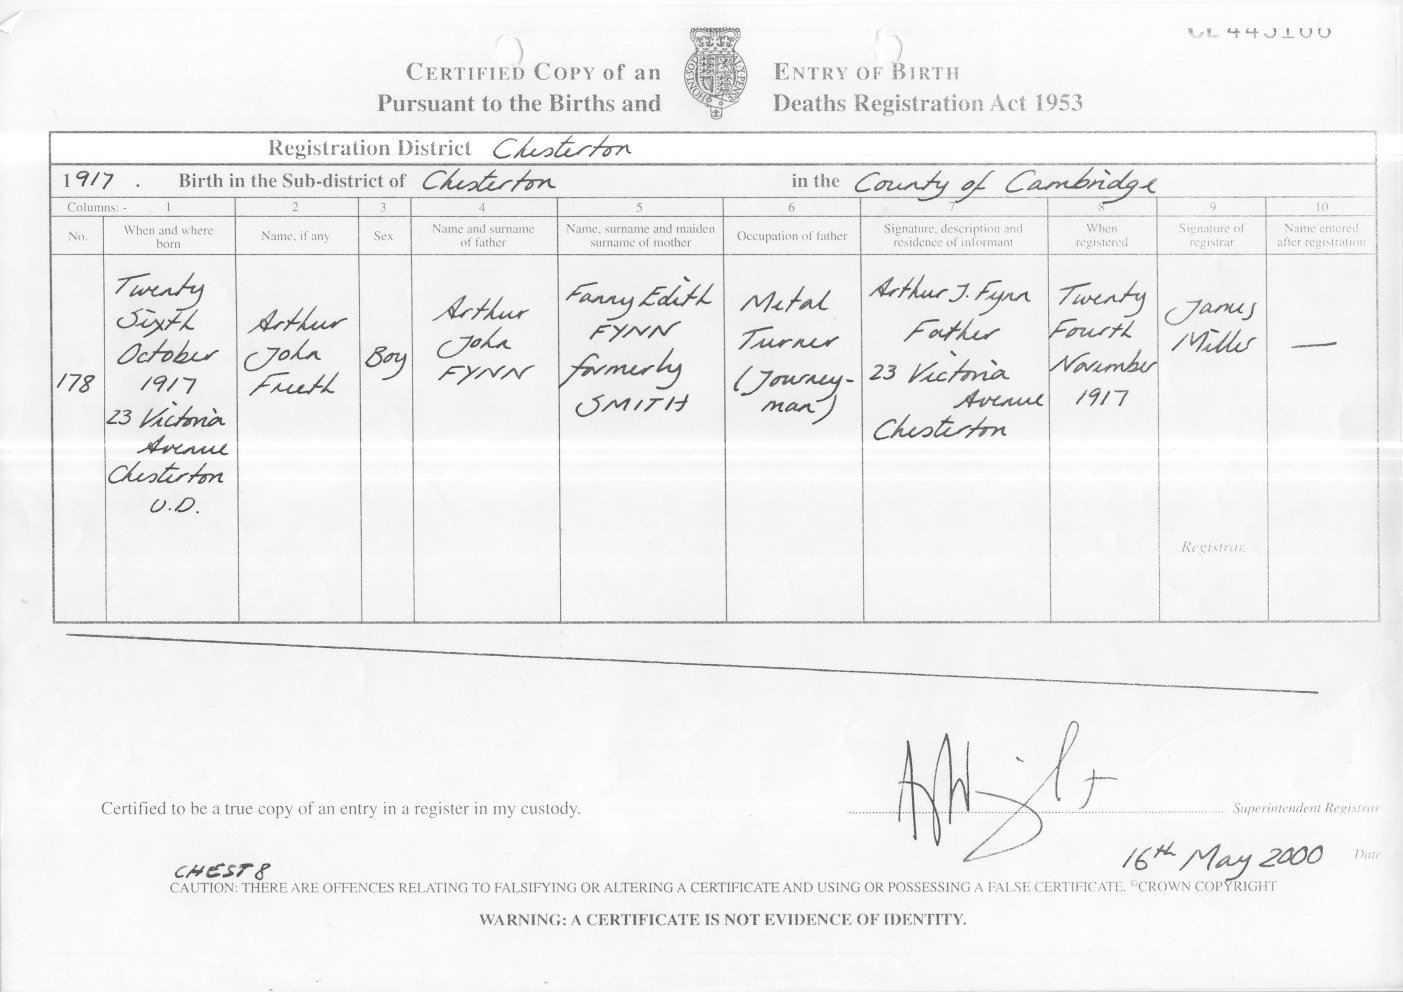 CERTIFIED COPY of an ENTRY OF BIRTH
Pursuant to the Births and Deaths Registration Act 1953
Registration District Chesterton
1917. Birth in the Sub-district of Chesterton in the County of Cambridge
Columns: - 1 2 3 4 5 6 7 8 9 10
No.
When and where
born
Name, if any
Sex
Name and surname
of father
Name, surname and maiden
surname of mother
Occupation of father
Signature, description and
residence of informant
When
registered
Signature of
registrar
Name entered
after registration
178
Twenty
Sixth
October
1917
23 Victoria
Avenue
Chesterton
U.D.
Arthur
John
Freeth
Boy
Arthur
John
FYNN
Fanny Edith
FYNN
formerly
SMITH
Metal
Turner
(Journey-
man)
Arthur J. Fynn
Father
23 Victoria
Avenue
Chesterton
Twenty
Fourth
November
1917
James
Miller
—
Registrar.
Certified to be a true copy of an entry in a register in my custody.
Superintendent Registrar
16th May 2000 Date
CHEST 8
CAUTION: THERE ARE OFFENCES RELATING TO FALSIFYING OR ALTERING A CERTIFICATE AND USING OR POSSESSING A FALSE CERTIFICATE. ©CROWN COPYRIGHT
WARNING: A CERTIFICATE IS NOT EVIDENCE OF IDENTITY.